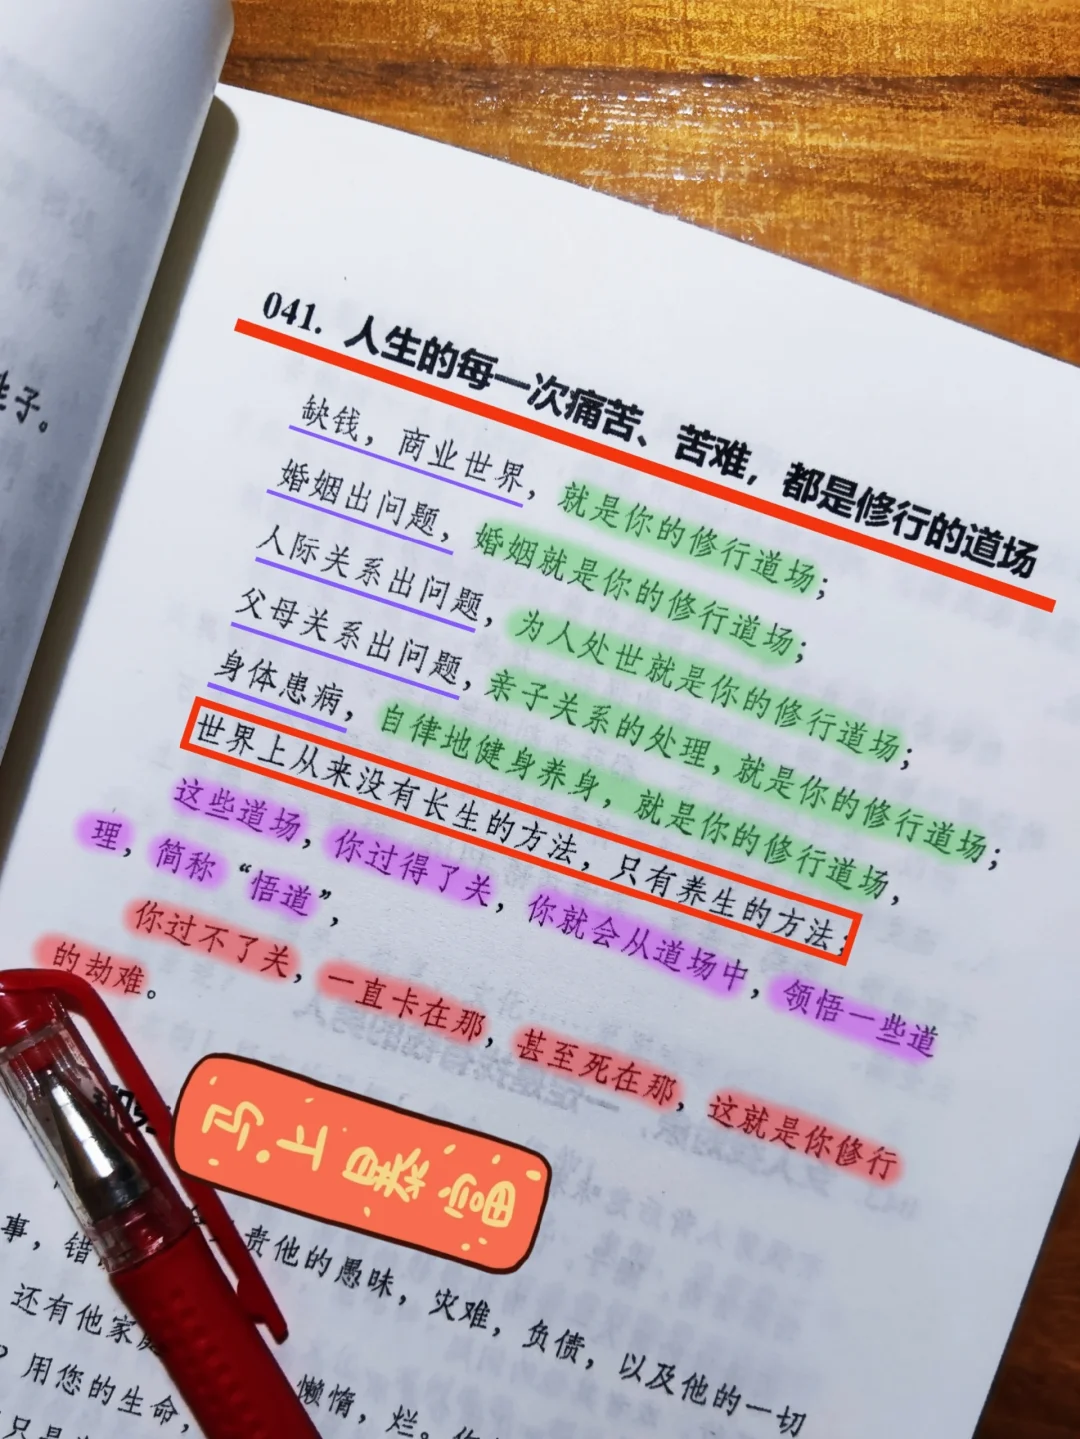 041. 人生的每一次痛苦、苦难，都是修行的道场
缺钱，商业世界，就是你的修行道场；
婚姻出问题，婚姻就是你的修行道场；
人际关系出问题，为人处世就是你的修行道场；
父母关系出问题，亲子关系的处理，就是你的修行道场；
身体患病，自律地健身养身，就是你的修行道场，
世界上从来没有长生的方法，只有养生的方法；
这些道场，你过得了关，你就会从道场中，领悟一些道
理，简称“悟道”，
你过不了关，一直卡在那，甚至死在那，这就是你修行
的劫难。
马上暴富
事，错
责他的愚昧，灾难，负债，以及他的一切
还有他家
？用您的生命，
懒惰，烂。
只是
子。